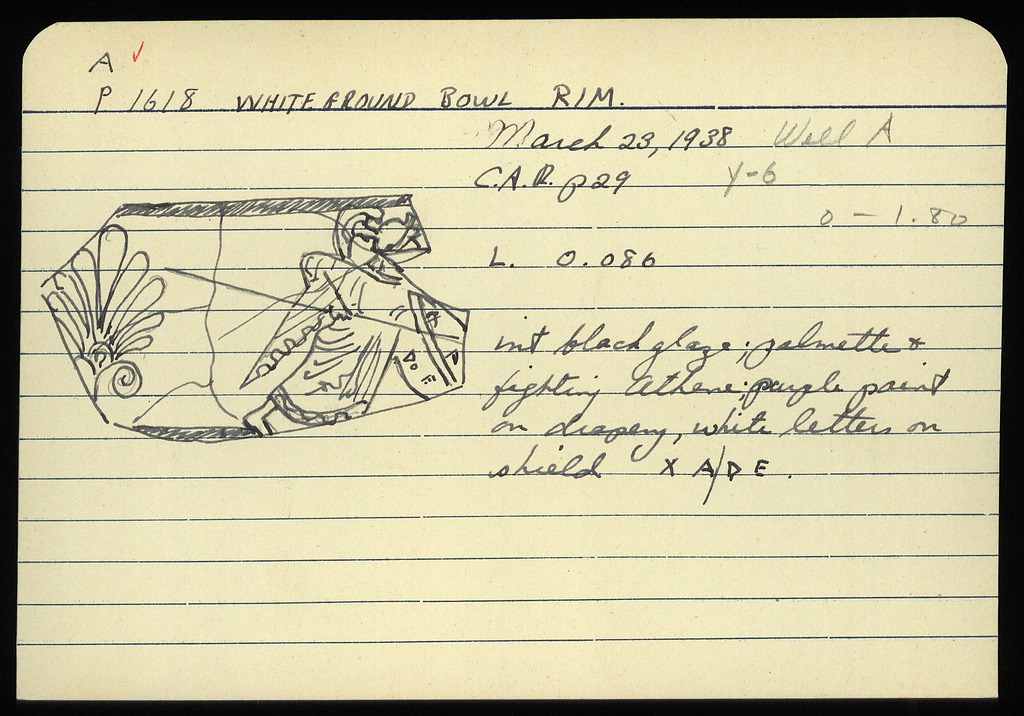 A ✓
P 1618 WHITE GROUND BOWL RIM.
March 23, 1938 Well A
C.A.R. p 29 Y-6
0 - 1.80
L. 0.086
int black glaze; palmette &
fighting Athene; purple paint
on drapery, white letters on
shield X A/D E.